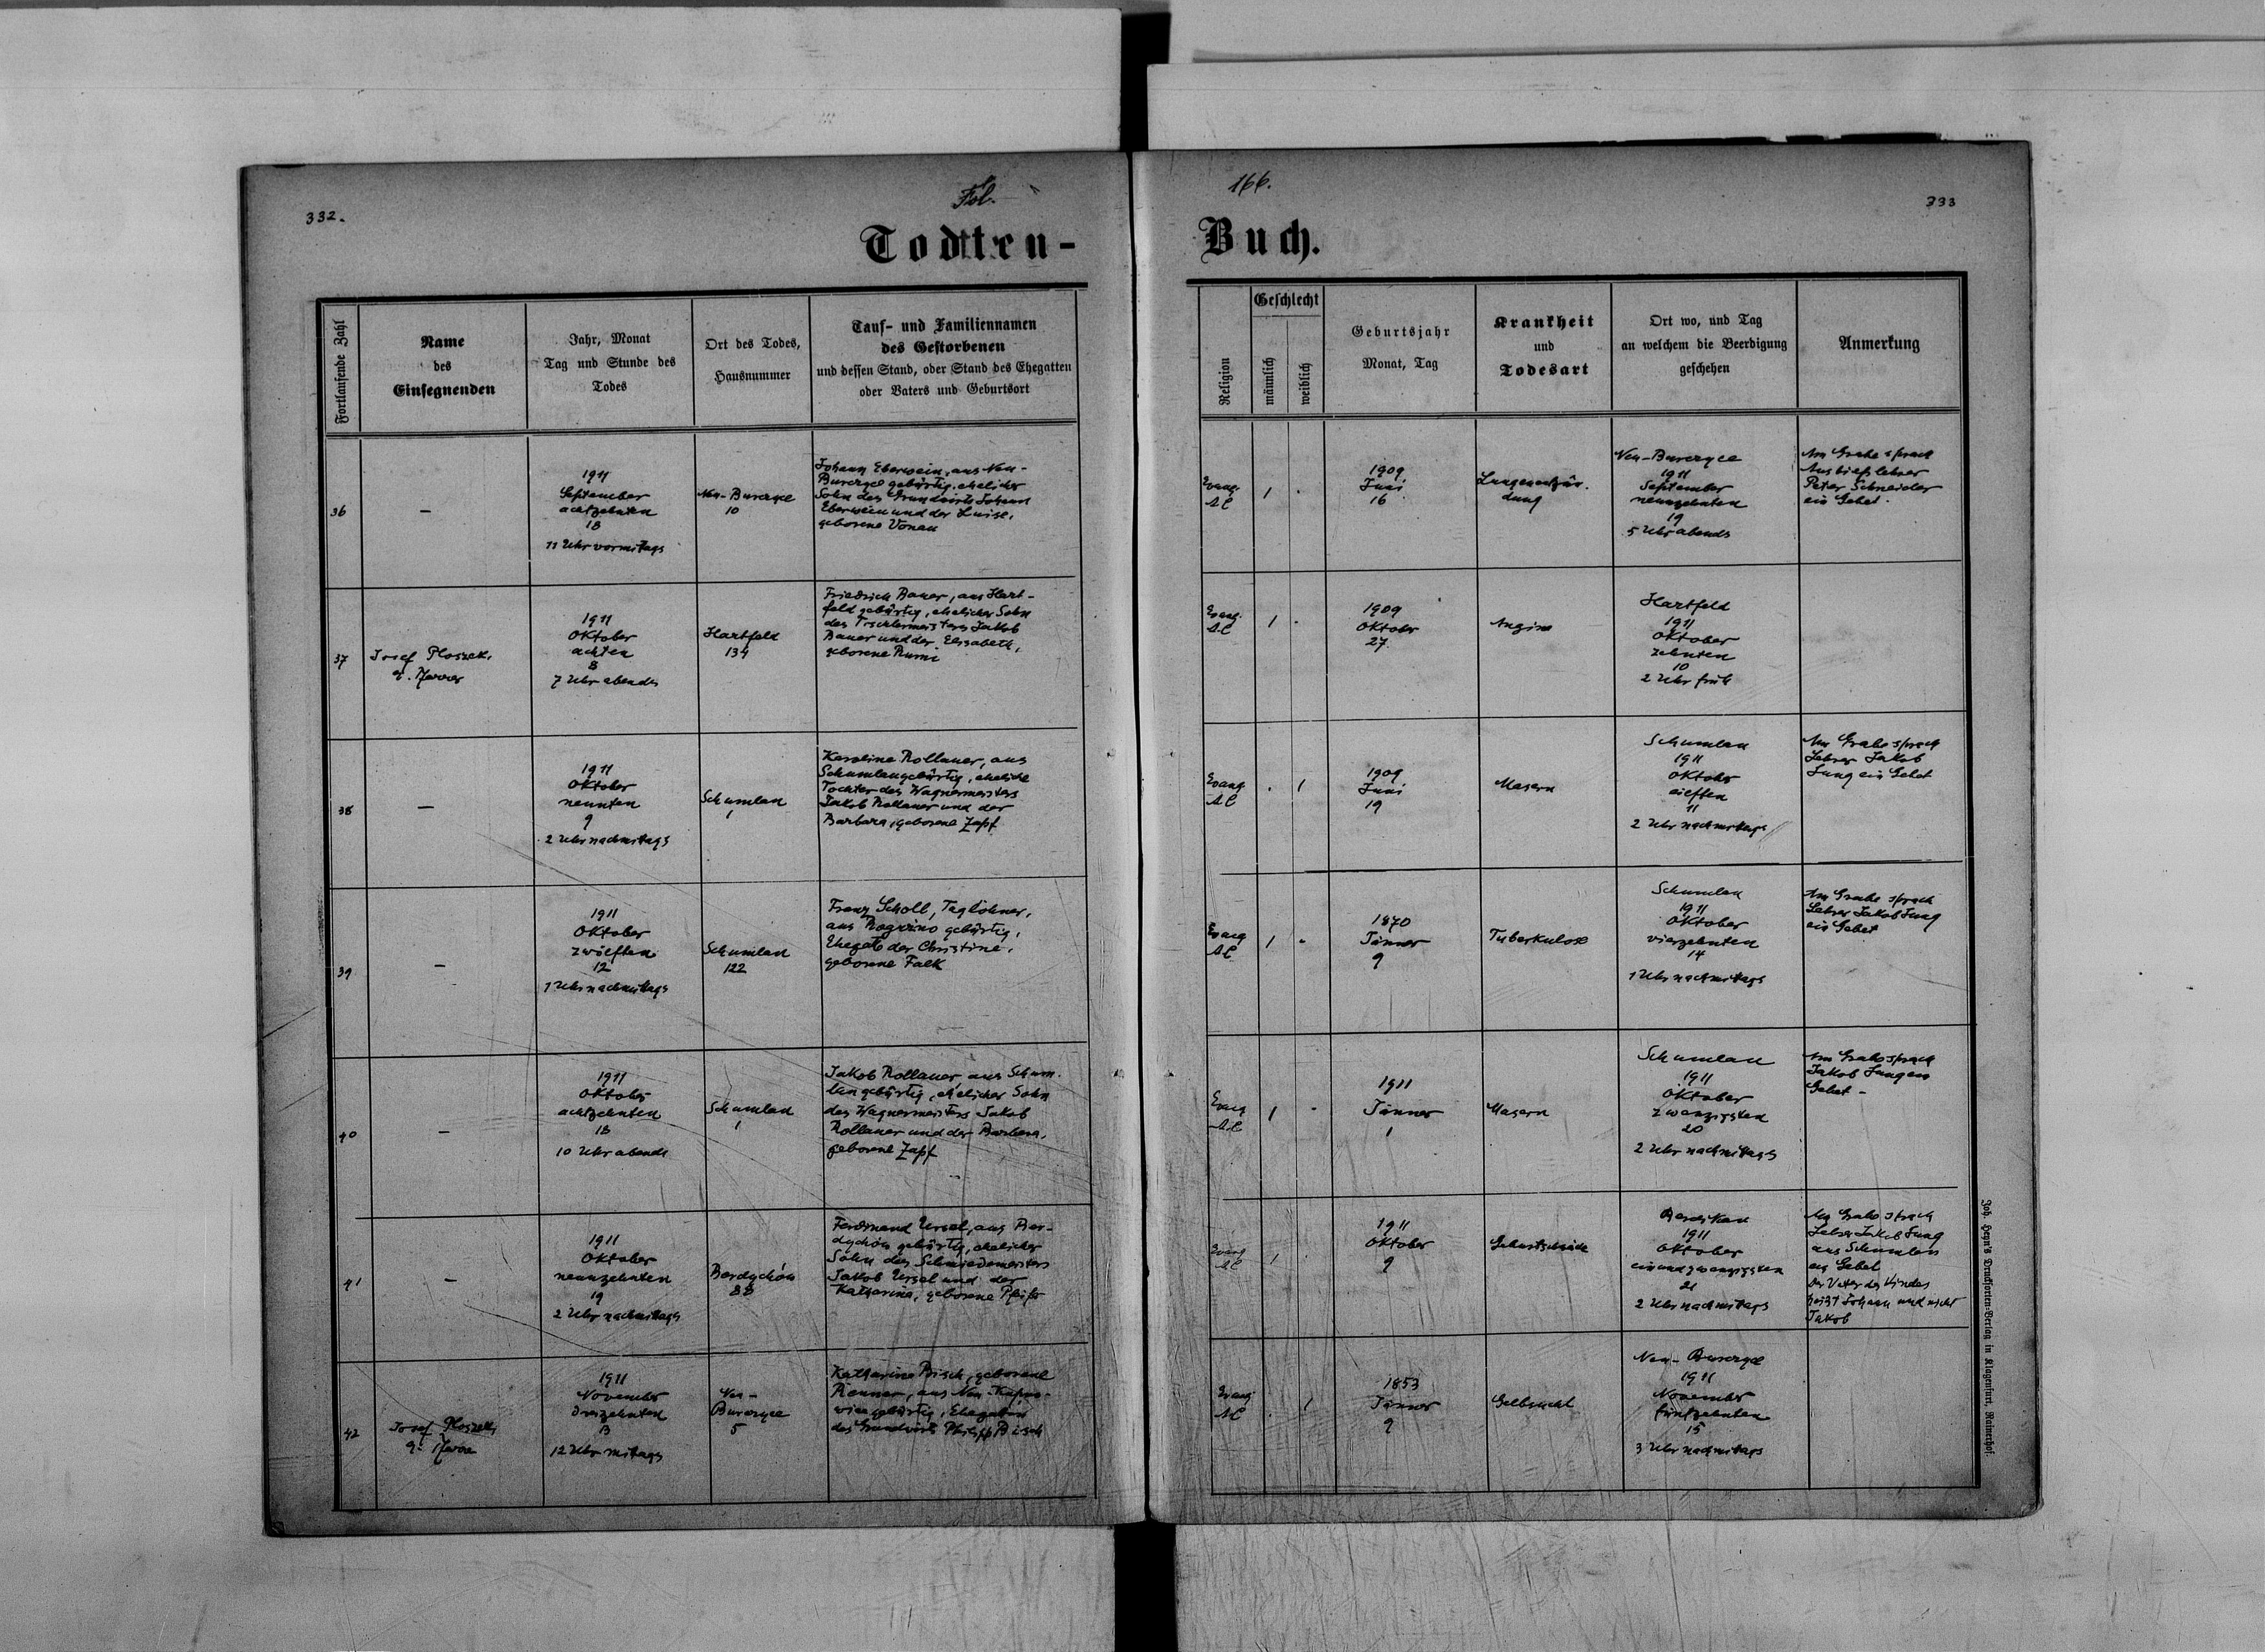 332.
Fol.
166.
333
Todten-
Buch.
Fortlaufende Zahl
Name
des
Einsegnenden
Jahr, Monat
Tag und Stunde des
Todes
Ort des Todes,
Hausnummer
Tauf- und Familiennamen
des Gestorbenen
und dessen Stand, oder Stand des Ehegatten
oder Vaters und Geburtsort
Religion
Geschlecht
männlich
weiblich
Geburtsjahr
Monat, Tag
Krankheit
und
Todesart
Ort wo, und Tag
an welchem die Beerdigung
geschehen
Anmerkung
36
—
1911
September
achtzehnten
18
11 Uhr vormitags
Neu-Burczyce
10
Johann Eberwein, aus Neu-
Burczyce gebürtig, ehelicher
Sohn des Grundwirts Johann
Eberwein und der Luise,
geborene Vonau
Evang.
AC
1
.
1909
Juni
16
Lungenentzün-
dung
Neu-Burczyce
1911
September
neunzehnten
19
5 Uhr abends
Am Grabe sprach
Aushilfslehrer
Peter Schneider
ein Gebet.
37
Josef Ploszek,
Pfarrer
1911
Oktober
achten
8
7 Uhr abends
Hartfeld
134
Friedrich Bauer, aus Hart-
feld gebürtig, ehelicher Sohn
des Tischlermeisters Jakob
Bauer und der Elisabeth,
geborene Rumi
Evang.
AC
1
.
1909
Oktober
27
Angina
Hartfeld
1911
Oktober
zehnten
10
2 Uhr früh
38
—
1911
Oktober
neunten
9
2 Uhr nachmitags
Schumlau
1
Karoline Rollauer, aus
Schumlau gebürtig, eheliche
Tochter des Wagnermeisters
Jakob Rollauer und der
Barbara, geborene Zapf
Evang.
AC
.
1
1909
Juni
19
Masern
Schumlau
1911
Oktober
eilften
11
2 Uhr nachmitags
Am Grabe sprach
Lehrer Jakob
Jung ein Gebet
39
—
1911
Oktober
zwölften
12
1 Uhr nachmitags
Schumlau
122
Franz Scholl, Taglöhner,
aus gebürtig,
Ehegatte der Christine,
geborene Falk
Evang
AC
1
.
1870
Jänner
9
Tuberkulose
Schumlau
1911
Oktober
vierzehnten
14
1 Uhr nachmitags
Am Grabe sprach
Lehrer Jakob Jung
ein Gebet
40
—
1911
Oktober
achtzehnten
18
10 Uhr abends
Schumlau
1
Jakob Rollauer aus Schum-
lau gebürtig, ehelicher Sohn
des Wagnermeisters Jakob
Rollauer und der Barbara,
geborene Zapf
Evang
AC
1
.
1911
Jänner
1
Masern
Schumlau
1911
Oktober
zwanzigsten
20
2 Uhr nachmitags
Am Grabe sprach
Jakob Jung ein
Gebet -
41
—
1911
Oktober
neunzehnten
19
2 Uhr nachmitags
Berdychów
88
Ferdinand Ursel, aus Ber-
dychów gebürtig, ehelicher
Sohn des Schmiedemeisters
Jakob Ursel und der
Katharina, geborene
Evang
AC
1
1911
Oktober
9
Geburtsschwäche
1911
Oktober
einundzwanzigsten
21
2 Uhr nachmitags
Am Grabe sprach
Lehrer Jakob Jung
aus Schumlau
ein Gebet
Der Vater des Kindes
heißt Johann und nicht
Jakob
42
Josef Ploszek,
Pfarrer
1911
November
dreizehnten
13
12 Uhr mitags
Neu-
Burczyce
5
Katharina Bisch, geborene
aus Neu-Kupno-
wice gebürtig, Ehegattin
des Grundwirts Philipp Bisch
Evang
AC
.
1
1853
Jänner
9
Gelbsucht
Neu-Burczyce
1911
November
fünfzehnten
15
3 Uhr nachmitags
Joh. Heyn's Drucksorten-Verlag in Klagenfurt, Rainerhof.